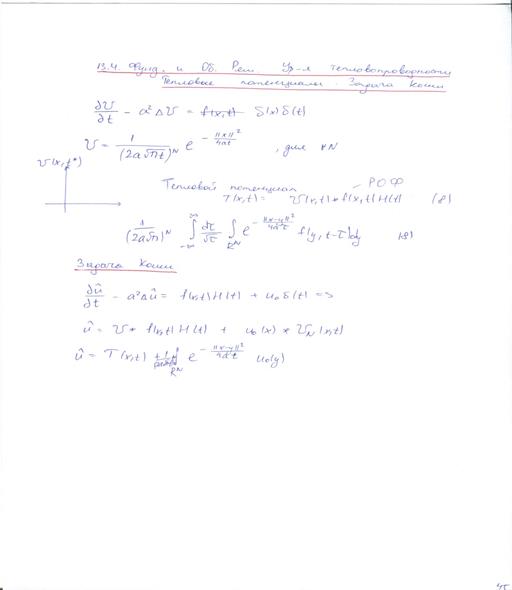 13.4. Фунд. и Об. Реш. Ур-я теплопроводности
Тепловые потенциалы. Задача Коши
∂U/∂t - a²ΔU = f(x,t) δ(x)δ(t)
U = 1/(2a√πt)^N e^(-||x||²/4at) , для ∀N
U(x,t*)
Тепловой потенциал - РОФ
T(x,t) = U(x,t) * f(x,t)H(t) (8)
1/(2a√π)^N ∫_{-∞}^{∞} dτ/√τ ∫_{R^N} e^(-||x-y||²/4a²τ) f(y, t-τ)dy (8)
Задача Коши
∂û/∂t - a²Δû = f(x,t)H(t) + u₀δ(t) =>
û = U * f(x,t)H(t) + u₀(x) * U_N(x,t)
û = T(x,t) + ∫_{R^N} e^(-||x-y||²/4a²t) u₀(y)
45